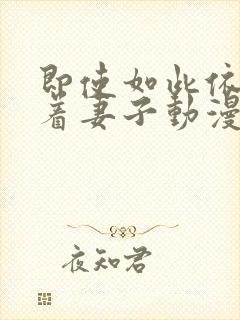 即使如此依
着妻子動漫
夜知君